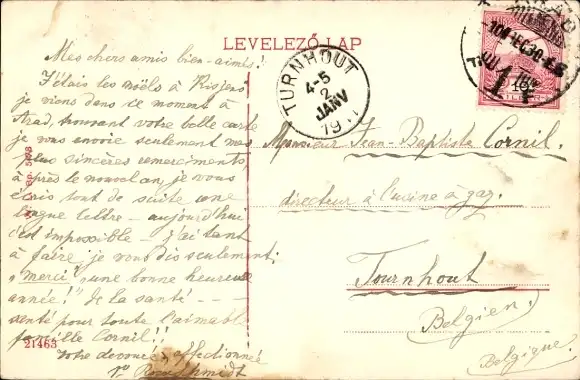 LEVELEZŐ-LAP
Mes chers amis bien-aimés!
J'étais les noëls à
je viens dans ce moment à
Arad, trouvant votre belle carte
je vous envoie seulement mes
plus sincères remerciments
après le nouvel an, je vous
écris tout de suite une
longue lettre — aujourd'hui
c'est impossible — j'ai tant
à faire, je vous dis seulement:
„merci", „une bonne heureuse
année!" De la santé - - -
santé pour toute l'aimable
famille Cornil!!
Votre devouée, affectionnée
21463
TURNHOUT
4-5
2
JANV
Monsieur Jean-Baptiste Cornil.
directeur à l'usine à gaz.
Tournhout
Belgien.
Belgique.